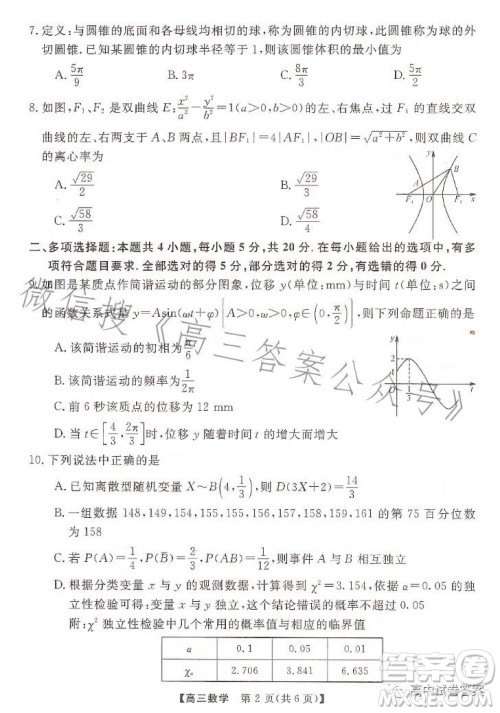 7. 定义:与圆锥的底面和各母线均相切的球,称为圆锥的内切球,此圆锥称为球的外
切圆锥. 已知某圆锥的内切球半径等于 1,则该圆锥体积的最小值为
A. 5π/9 B. 3π C. 8π/3 D. 5π/2
8. 如图,F₁、F₂ 是双曲线 E: x²/a² − y²/b² = 1(a>0,b>0)的左、右焦点,过 F₁ 的直线交双
曲线的左、右两支于 A、B 两点,且|BF₁|=4|AF₁|,|OB|=√(a²+b²),则双曲线
的离心率为
A. √29/2 B. √29/3
C. √58/3 D. √58/4
y
B
A
F₁ O F₂ x
二、多项选择题:本题共 4 小题,每小题 5 分,共 20 分. 在每小题给出的选项中,有多
项符合题目要求. 全部选对的得 5 分,部分选对的得 2 分,有选错的得 0 分.
9. 如图是某质点作简谐运动的部分图象,位移 y(单位:mm)与时间 t(单位:s)之间
的函数关系式是 y=Asin(ωt+φ)(A>0,ω>0,φ∈(0,π/2)),则下列命题正确的是
A. 该简谐运动的初相为 π/6
B. 该简谐运动的频率为 1/2π
C. 前 6 秒该质点的位移为 12 mm
D. 当 t∈[π/3,4π/3] 时,位移 y 随着时间 t 的增大而增大
10. 下列说法中正确的是
A. 已知离散型随机变量 X~B(4,1/3),则 D(3X+2)=14/3
B. 一组数据 148,149,154,155,155,156,157,158,159,161 的第 75 百分位数
为 158
C. 若 P(A)=1/4,P(B)=2/3,P(AB)=1/12,则事件 A 与 B 相互独立
D. 根据分类变量 x 与 y 的观测数据,计算得到 χ²=3.154,依据 α=0.05 的
独立性检验可得:变量 x 与 y 独立,这个结论错误的概率不超过 0.05
附:χ² 独立性检验中几个常用的概率值与相应的临界值
α 0.1 0.05 0.01
χα 2.706 3.841 6.635
【高三数学 第 2 页(共 6 页)】
微信搜《高三答案公众号》
高中试卷答案